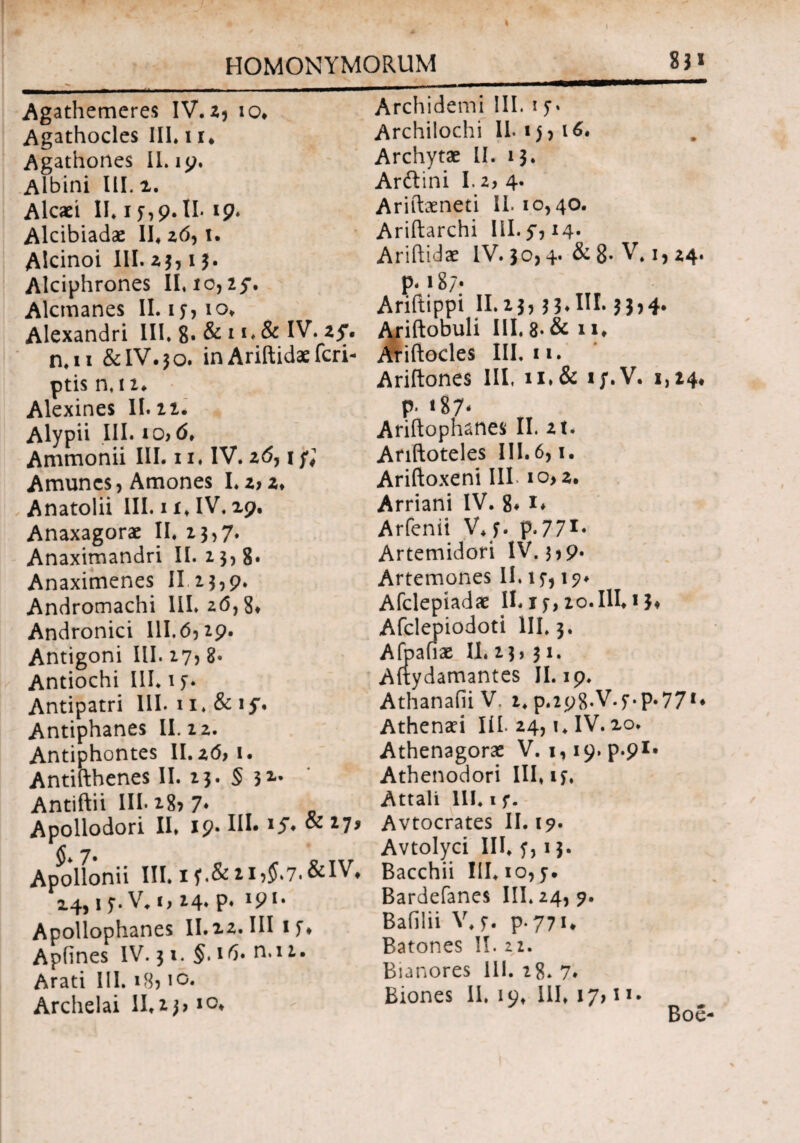 HOMONYMORUM 831
Agathemeres IV. 2, 10.
Agathocles III. 11.
Agathones II. 19.
Albini III. 2.
Alcæi II. 15, 9. II. 19.
Alcibiadæ II, 26, 1.
Alcinoi III. 23, 13.
Alciphrones II, 10, 25.
Alcmanes II. 15, 10.
Alexandri III. 8. & 11. & IV. 25.
n. 11 & IV. 30. in Ariſtidæ ſcri-
ptis n. 12.
Alexines II. 22.
Alypii III. 10, 6.
Ammonii III. 11. IV. 26, 15.
Amunes, Amones I. 2, 2.
Anatolii III. 11. IV. 29.
Anaxagoræ II. 23, 7.
Anaximandri II. 23, 8.
Anaximenes II 23, 9.
Andromachi III. 26, 8.
Andronici III. 6, 29.
Antigoni III. 27, 8.
Antiochi III. 15.
Antipatri III. 11. & 15.
Antiphanes II. 22.
Antiphontes II. 26, 1.
Antiſthenes II. 23. § 32.
Antiſtii III. 28, 7.
Apollodori II. 19. III. 15. & 27,
§. 7.
Apollonii III. 15. & 21, §. 7. & IV.
24, 15. V. 1, 24. p. 191.
Apollophanes II. 22. III 15.
Apſines IV. 31. §. 16. n. 12.
Arati III. 18, 10.
Archelai II, 23, 10.
Archidemi III. 15.
Archilochi II. 15, 16.
Archytæ II. 13.
Arctini I. 2, 4.
Ariſtæneti II. 10, 40.
Ariſtarchi III. 5, 14.
Ariſtidæ IV. 30, 4. & 8. V. 1, 24.
p. 187.
Ariſtippi II. 23, 33. III. 33, 4.
Ariſtobuli III. 8. & 11.
Ariſtocles III. 11.
Ariſtones III, 11. & 15. V. 1, 24.
p. 187.
Ariſtophanes II. 21.
Ariſtoteles III. 6, 1.
Ariſtoxeni III 10, 2.
Arriani IV. 8. 1.
Arſenii V. 5. p. 771.
Artemidori IV. 3, 9.
Artemones II. 15, 19.
Aſclepiadæ II. 15, 20. III. 13.
Aſclepiodoti III. 3.
Aſpaſiæ II. 23, 31.
Aſtydamantes II. 19.
Athanaſii V. 2. p. 298. V. 5. p. 771.
Athenæi III. 24, 1. IV. 20.
Athenagoræ V. 1, 19. p. 91.
Athenodori III, 15.
Attali III. 15.
Avtocrates II. 19.
Avtolyci III. 5, 13.
Bacchii III. 10, 5.
Bardeſanes III. 24, 9.
Baſilii V. 5. p. 771.
Batones II. 22.
Bianores III. 28. 7.
Biones II. 19. III. 17, 11.
Boë-